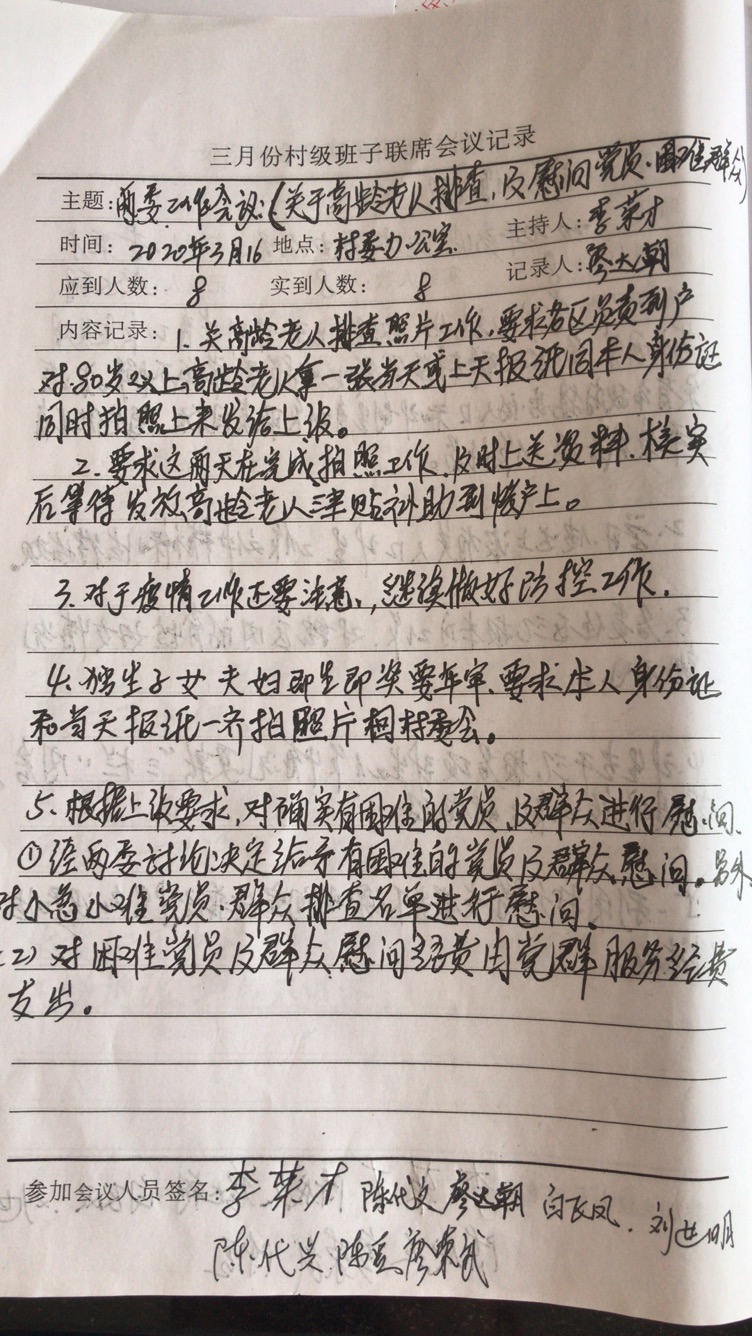 三月份村级班子联席会议记录
主题:两委工作会议:(关于高龄老人排查,及慰问党员·困难群众)
时间:2020年3月16 地点:村委办公室 主持人:李荣才
应到人数:8 实到人数:8 记录人:廖大朝
内容记录:1.关高龄老人排查照片工作,要求各区员责到户
对80岁以上高龄老人拿一张当天或上天报纸同本人身份证
同时拍照上来发给上级。
2.要求这两天在完成拍照工作,及时上送资料、核实
后等待发放高龄老人津贴补助到帐户上。
3.对于疫情工作还要注意,继续做好防控工作.
4.独生子女夫妇即生即奖要年审,要求本人身份证
和当天报纸一齐拍照片村委会。
5.根据上级要求,对确实有困难的党员、及群众进行慰问、
①经两委讨论决定给予有困难的党员及群众慰问。另外
对小急小难党员·群众排查名单进行慰问、
(2)对困难党员及群众慰问经费由党群服务经费
支出。
参加会议人员签名:李荣才 陈代文 廖大朝 白飞凤 刘世明
陈代兴 陈 廖东武